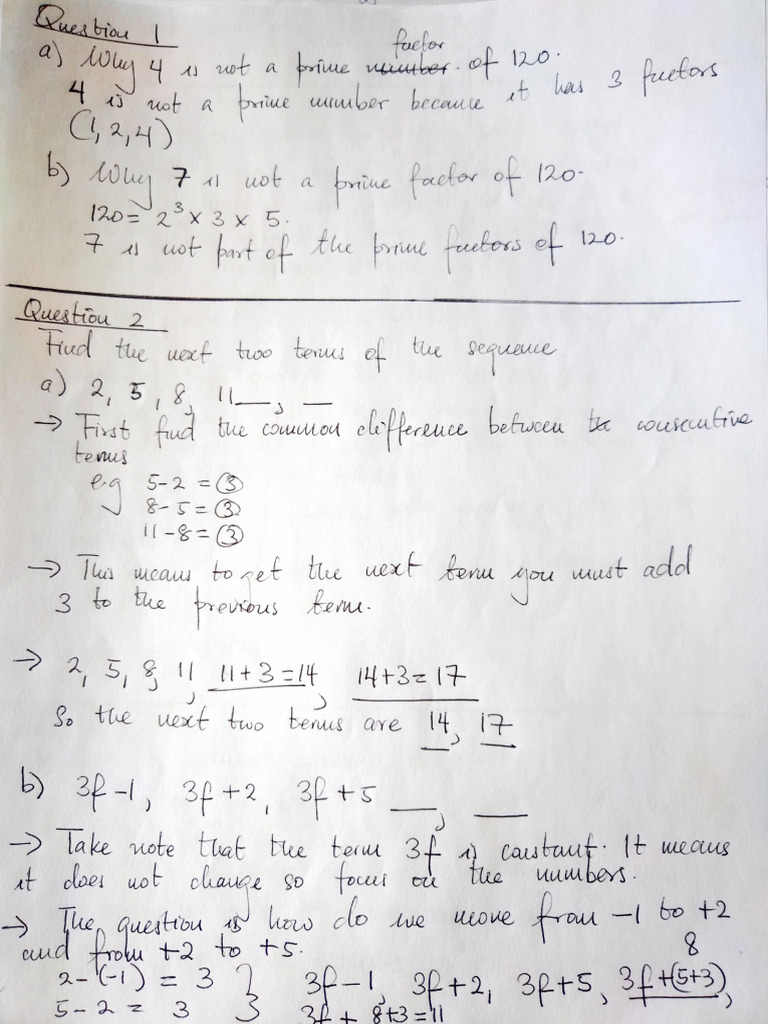 Question 1
a) Why 4 is not a prime number factor of 120.
4 is not a prime number because it has 3 factors
(1, 2, 4)
b) Why 7 is not a prime factor of 120.
120 = 2³ × 3 × 5.
7 is not part of the prime factors of 120.
Question 2
Find the next two terms of the sequence
a) 2, 5, 8, 11 __, __
→ First find the common difference between consecutive
terms
e.g 5-2 = 3
8-5 = 3
11-8 = 3
→ This means to get the next term you must add
3 to the previous term.
→ 2, 5, 8, 11, 11+3=14, 14+3=17
So the next two terms are 14, 17
b) 3f-1, 3f+2, 3f+5 __, __
→ Take note that the term 3f is constant. It means
it does not change so focus on the numbers.
→ The question is how do we move from -1 to +2
and from +2 to +5.
8
2-(-1) = 3 } 3f-1, 3f+2, 3f+5, 3f+(5+3),
5-2 = 3 3f + 8+3=11